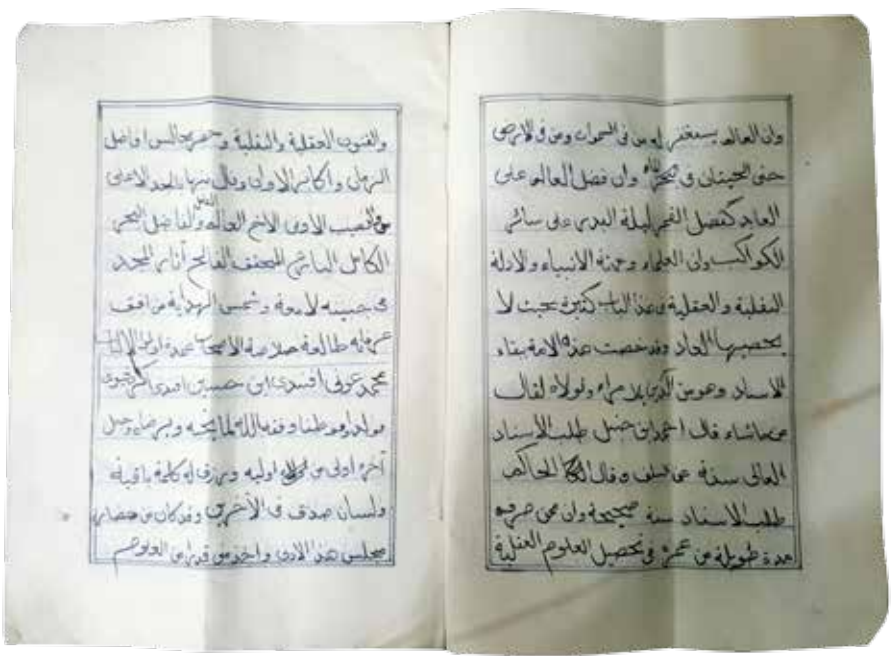 وان العالم يستغفر له من فى السموات ومن فى الارض
حتى الحيتان فى البحر الماء وان فضل العالم على
العابد كفضل القمر ليلة البدر على سائر
الكواكب وان العلماء ورثة الانبياء والادلة
النقلية والعقلية فى هذا الباب كثيرة بحيث لا
يحصيها العاد وقد خصت هذه الامة ببقاء
الاسناد وهو من الدين بلا مراء ولولاه لقال
من شاء ماشاء قال احمد ابن حنبل طلب الاسناد
العالى سنة عن السلف وقال الحاكم
طلب الاسناد سنة صحيحة وان ممن صرف
مدة طويلة من عمره فى تحصيل العلوم العقلية
والفنون العقلية والنقلية وحضر مجالس افاضل
الرجال واكابر الاولى ونال منها الحد الاعلى
والنصيب الاوفى الاخ العالم والفاضل
الكامل المحقق آثار المجد
فى جبينه لامعة وشمس الهداية من افق
عرفانه طالعة خلاصة الاصحاب عمدة اولى الالباب
محمد عونى افندى ابن حسين افندى
مولدا وموطنا وفقه الله لما يحبه ويرضاه وجعل
آخره اولى من اوليه ورزق له كلمة باقية
ولسان صدق فى الآخرين وقد كان من حضار
مجلس هذا الادنى واخذ من العلوم